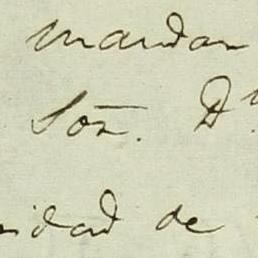 mandan
Sor. Dn
nidad de